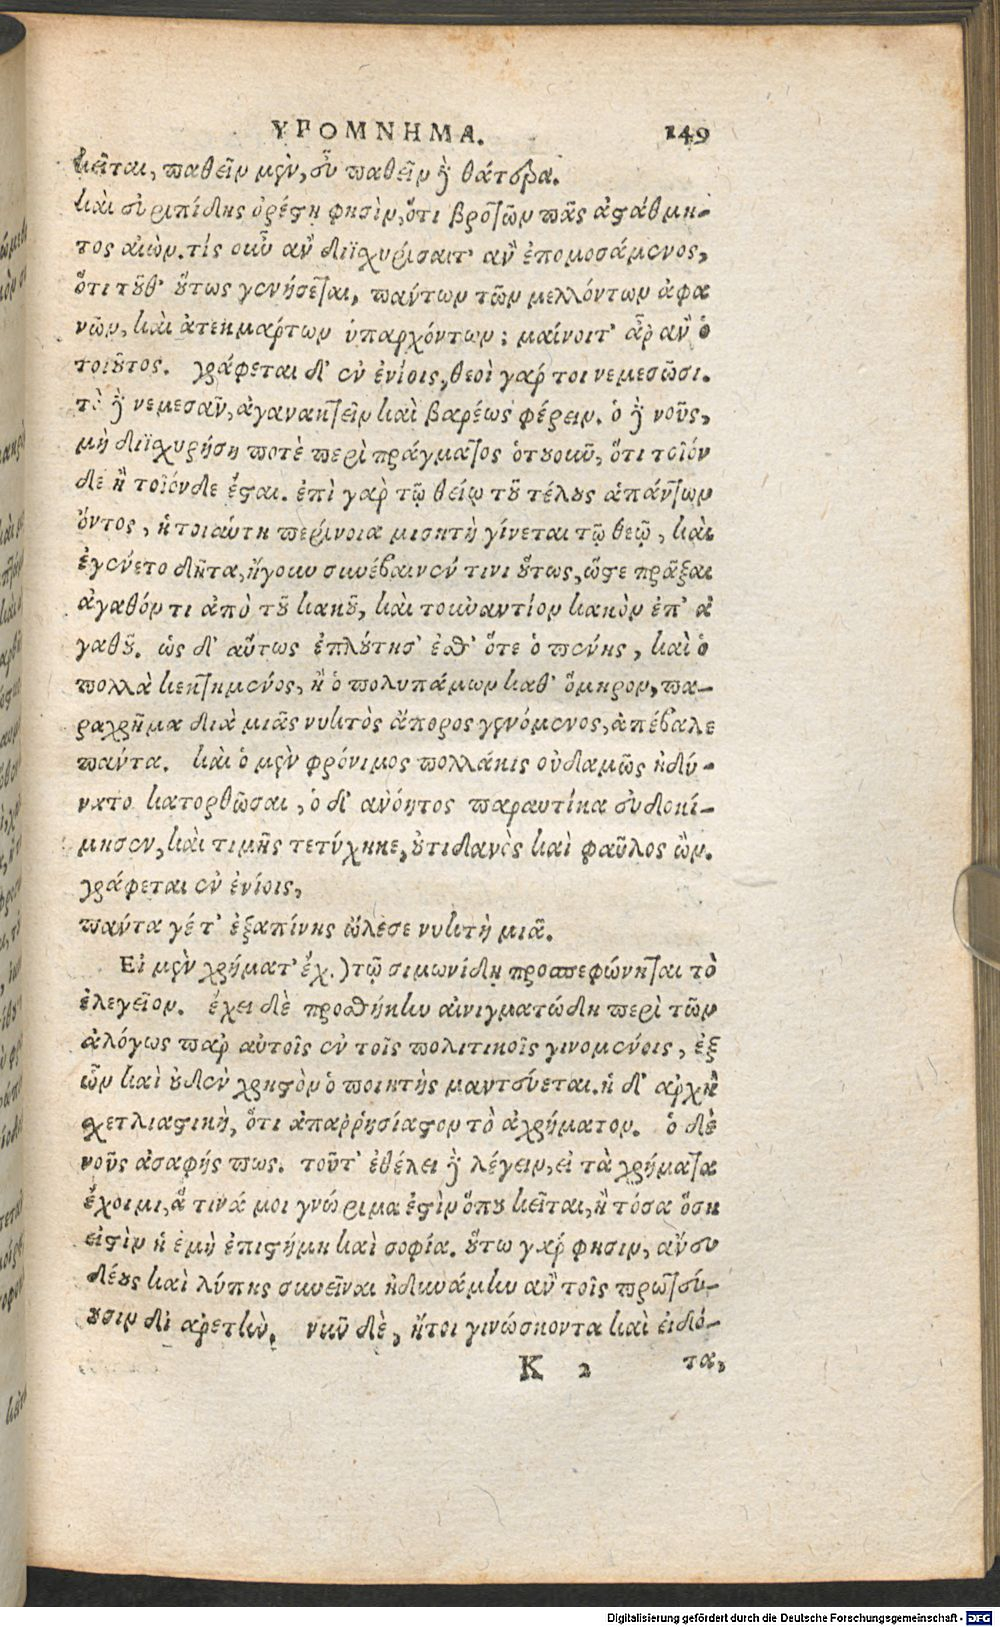 ΥΠΟΜΝΗΜΑ. 149
κεῖται, παθεῖν μὲν, εὖ παθεῖν ἢ θάτερα.
καὶ εὐριπίδης ὀρέστῃ φησὶν, ὅτι βροτῶν πᾶς ἀστάθμη-
τος αἰὼν. τίς οὖν ἂν διϊσχυρίσαιτ' ἂν ἐπομοσάμενος,
ὅτι τοῦθ' οὕτως γενήσεται, πάντων τῶν μελλόντων ἀφα
νῶν, καὶ ἀτεκμάρτων ὑπαρχόντων; μαίνοιτ' ἂρ ἂν ὁ
τοιοῦτος. γράφεται δ' ἐν ἐνίοις, θεοὶ γάρ τοι νεμεσῶσι.
τὸ ἢ νεμεσᾶν, ἀγανακτεῖν καὶ βαρέως φέρειν. ὁ ἢ νοῦς,
μὴ διϊσχυρήσῃ ποτὲ περὶ πράγματος ὁτουοῦν, ὅτι τοῖόν
δε ἢ τοῖόνδε ἔσται. ἐπὶ γὰρ τῷ θείῳ τοῦ τέλους ἁπάντων
ὄντος, ἡ τοιαύτη περίνοια μισητὴ γίνεται τῷ θεῷ, καὶ
ἐγένετο δῆτα, ἤγουν συνέβαινέν τινι οὕτως, ὥστε πρᾶξαι
ἀγαθόν τι ἀπὸ τοῦ κακοῦ, καὶ τοὐναντίον κακὸν ἐπ' ἀ
γαθοῦ. ὡς δ' αὔτως ἐπλούτησ' ἔσθ' ὅτε ὁ πένης, καὶ ὁ
πολλὰ κεκτημένος, ἢ ὁ πολυπάμων καθ' ὅμηρον, πα-
ραχρῆμα διὰ μιᾶς νυκτὸς ἄπορος γενόμενος, ἀπέβαλε
πάντα. καὶ ὁ μὲν φρόνιμος πολλάκις οὐδαμῶς ἠδύ-
νατο κατορθῶσαι, ὁ δ' ἀνόητος παραυτίκα εὐδοκί-
μησεν, καὶ τιμῆς τετύχηκε, οὐτιδανὸς καὶ φαῦλος ὤν.
γράφεται ἐν ἐνίοις,
πάντα γέ τ' ἐξαπίνης ὤλεσε νυκτὴ μιᾶ.
Εἰ μὲν χρήματ' ἔχ.) τῷ σιμωνίδῃ προσπεφώνηται τὸ
ἐλεγεῖον. ἔχει δὲ προσθήκην αἰνιγματώδη περὶ τῶν
ἀλόγως παρ αὐτοῖς ἐν τοῖς πολιτικοῖς γινομένοις, ἐξ
ὧν καὶ οὐδὲν χρηστὸν ὁ ποιητὴς μαντεύεται. ἡ δ' ἀρχὴ
σχετλιαστικὴ, ὅτι ἀπαῤῥησίαστον τὸ ἀχρήματον. ὁ δὲ
νοῦς ἀσαφής πως. τοῦτ' ἐθέλει ἢ λέγειν, εἰ τὰ χρήματα
ἔχοιμι, ἅ τινά μοι γνώριμα ἐστὶν ὅπου κεῖται, ἢ τόσα ὅση
ἐστὶν ἡ ἐμὴ ἐπιστήμη καὶ σοφία. οὕτω γάρ φησιν, ἄνευ
δέους καὶ λύπης συνεῖναι ἠδυνάμην ἂν τοῖς πρωτεύ-
ουσιν δι ἀρετὴν. νῦν δὲ, ἤτοι γινώσκοντα καὶ εἰδό-
K 2 τα,
Digitalisierung gefördert durch die Deutsche Forschungsgemeinschaft - DFG